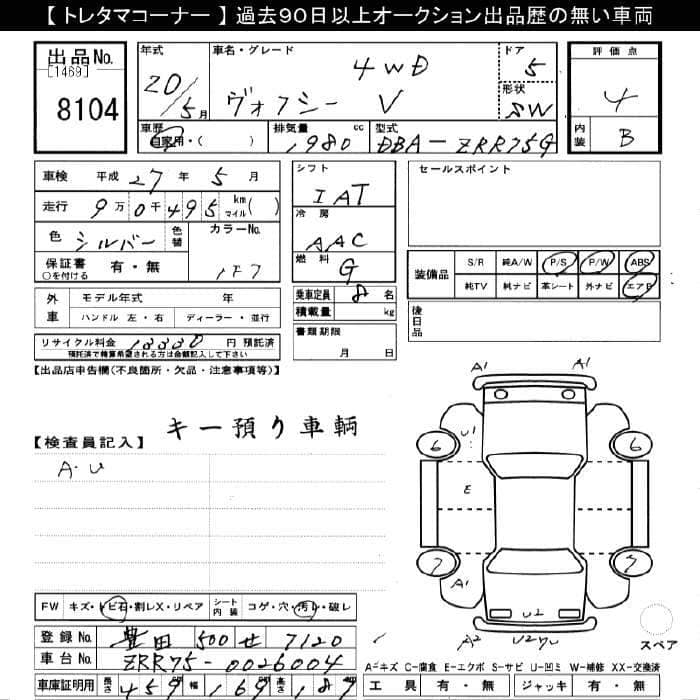 【 トレタマコーナー 】 過去90日以上オークション出品歴の無い車両
出品No. [1469] 8104
年式 20/5月
車名・グレード 4WD
ヴォクシー V
ドア 5
形状 SW
評価点 4
内装 B
車歴 自家用・( )
排気量 1980 cc
型式 DBA-ZRR75G
車検 平成 27年 5月
走行 9万0千495 km マイル( )
色 シルバー 色替
カラーNo. 1F7
保証書 ○を付ける 有・無
シフト IAT
冷房 AAC
燃料 G
乗車定員 8名
積載量 kg
書類期限 月 日
セールスポイント
装備品 S/R 純A/W P/S P/W ABS
純TV 純ナビ 革シート 外ナビ エアB
後日品
外車 モデル年式 年
ハンドル 左・右 ディーラー・並行
リサイクル料金 円 預託済
預託済で精算希望される方は金額記入して下さい
【出品店申告欄(不良箇所・欠品・注意事項等)】
キー預り車輌
【検査員記入】
A・U
A1 A1
U1
6 6
E
7 7
A1
U2
A2
FW キズ・トビ石・割レX・リペア シート内装 コゲ・穴・汚レ・破レ
登録No. 豊田 500 せ 7120
車台No. ZRR75-0026004
車庫証明用 長さ 459 幅 169 高さ 187
スペア
A=キズ C=腐食 E=エクボ S=サビ U=凹ミ W=補修 XX=交換済
工具 有・無 ジャッキ 有・無